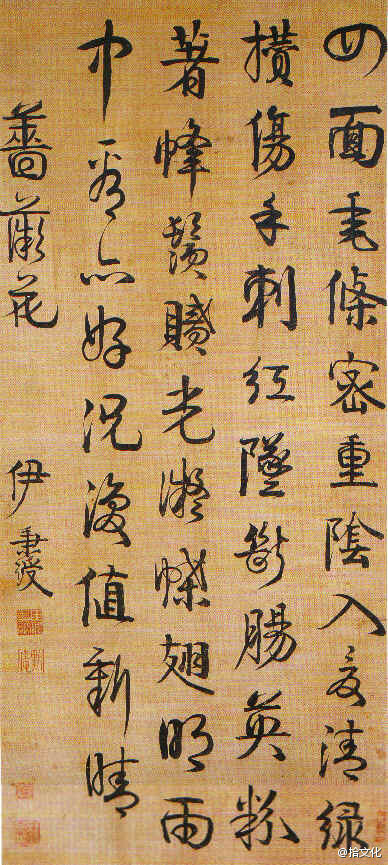 四面垂條密重陰入夏清緑
攢傷手刺紅墜斷腸英粉
著蜂鬚膩光凝蝶翅明雨
中看亦好況復值新晴
薔薇花
伊秉綬
@拾文化